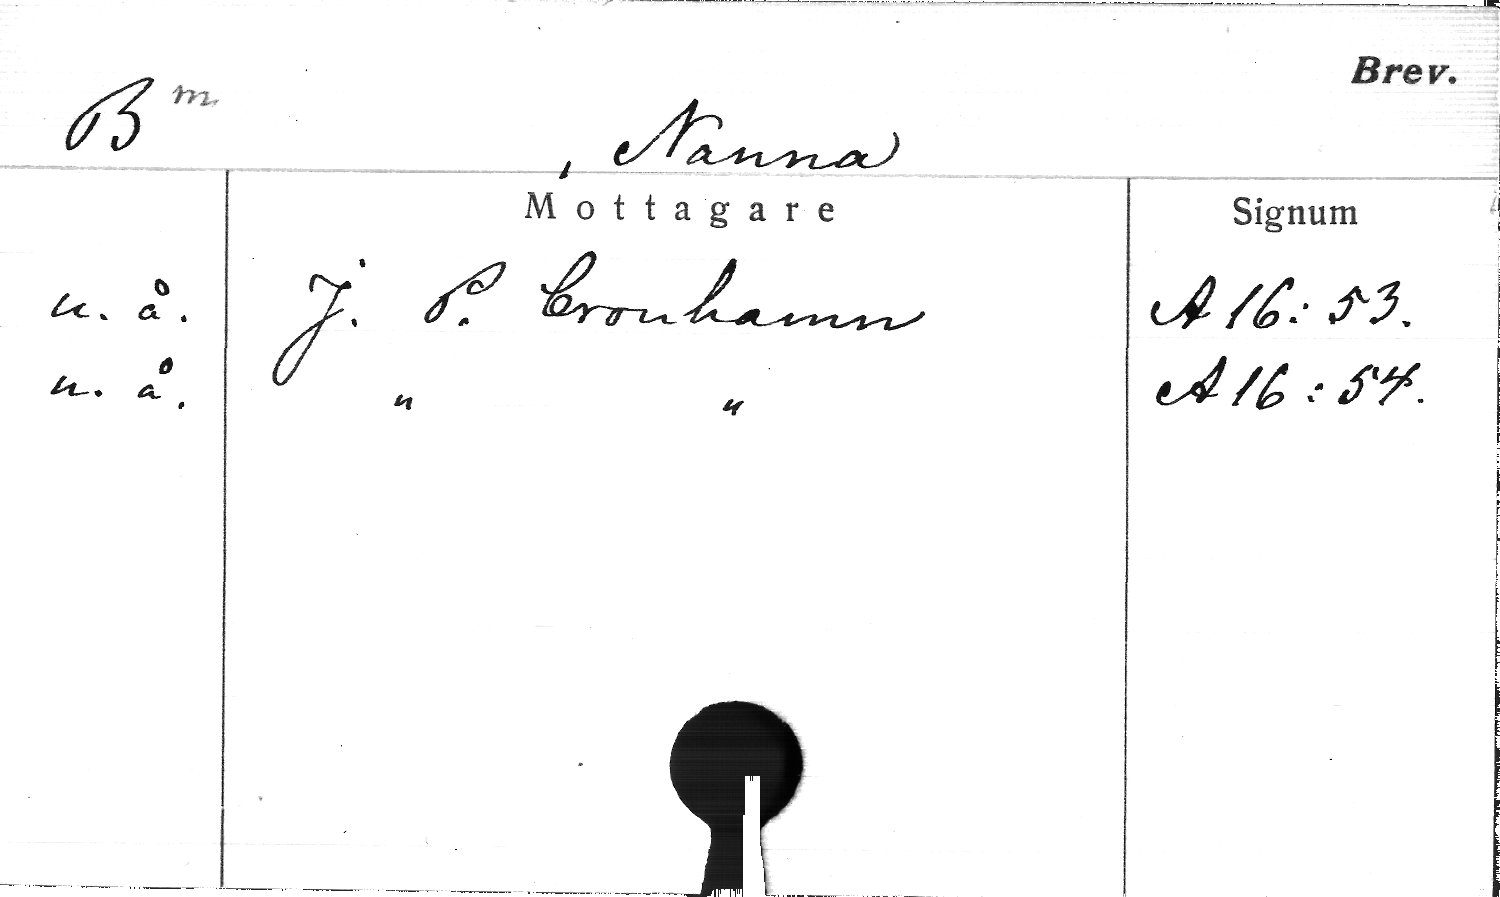 Brev.
B m. , Nanna
Mottagare Signum
u. å. J. P. Cronhamn A 16: 53.
u. å. " " A 16: 54.